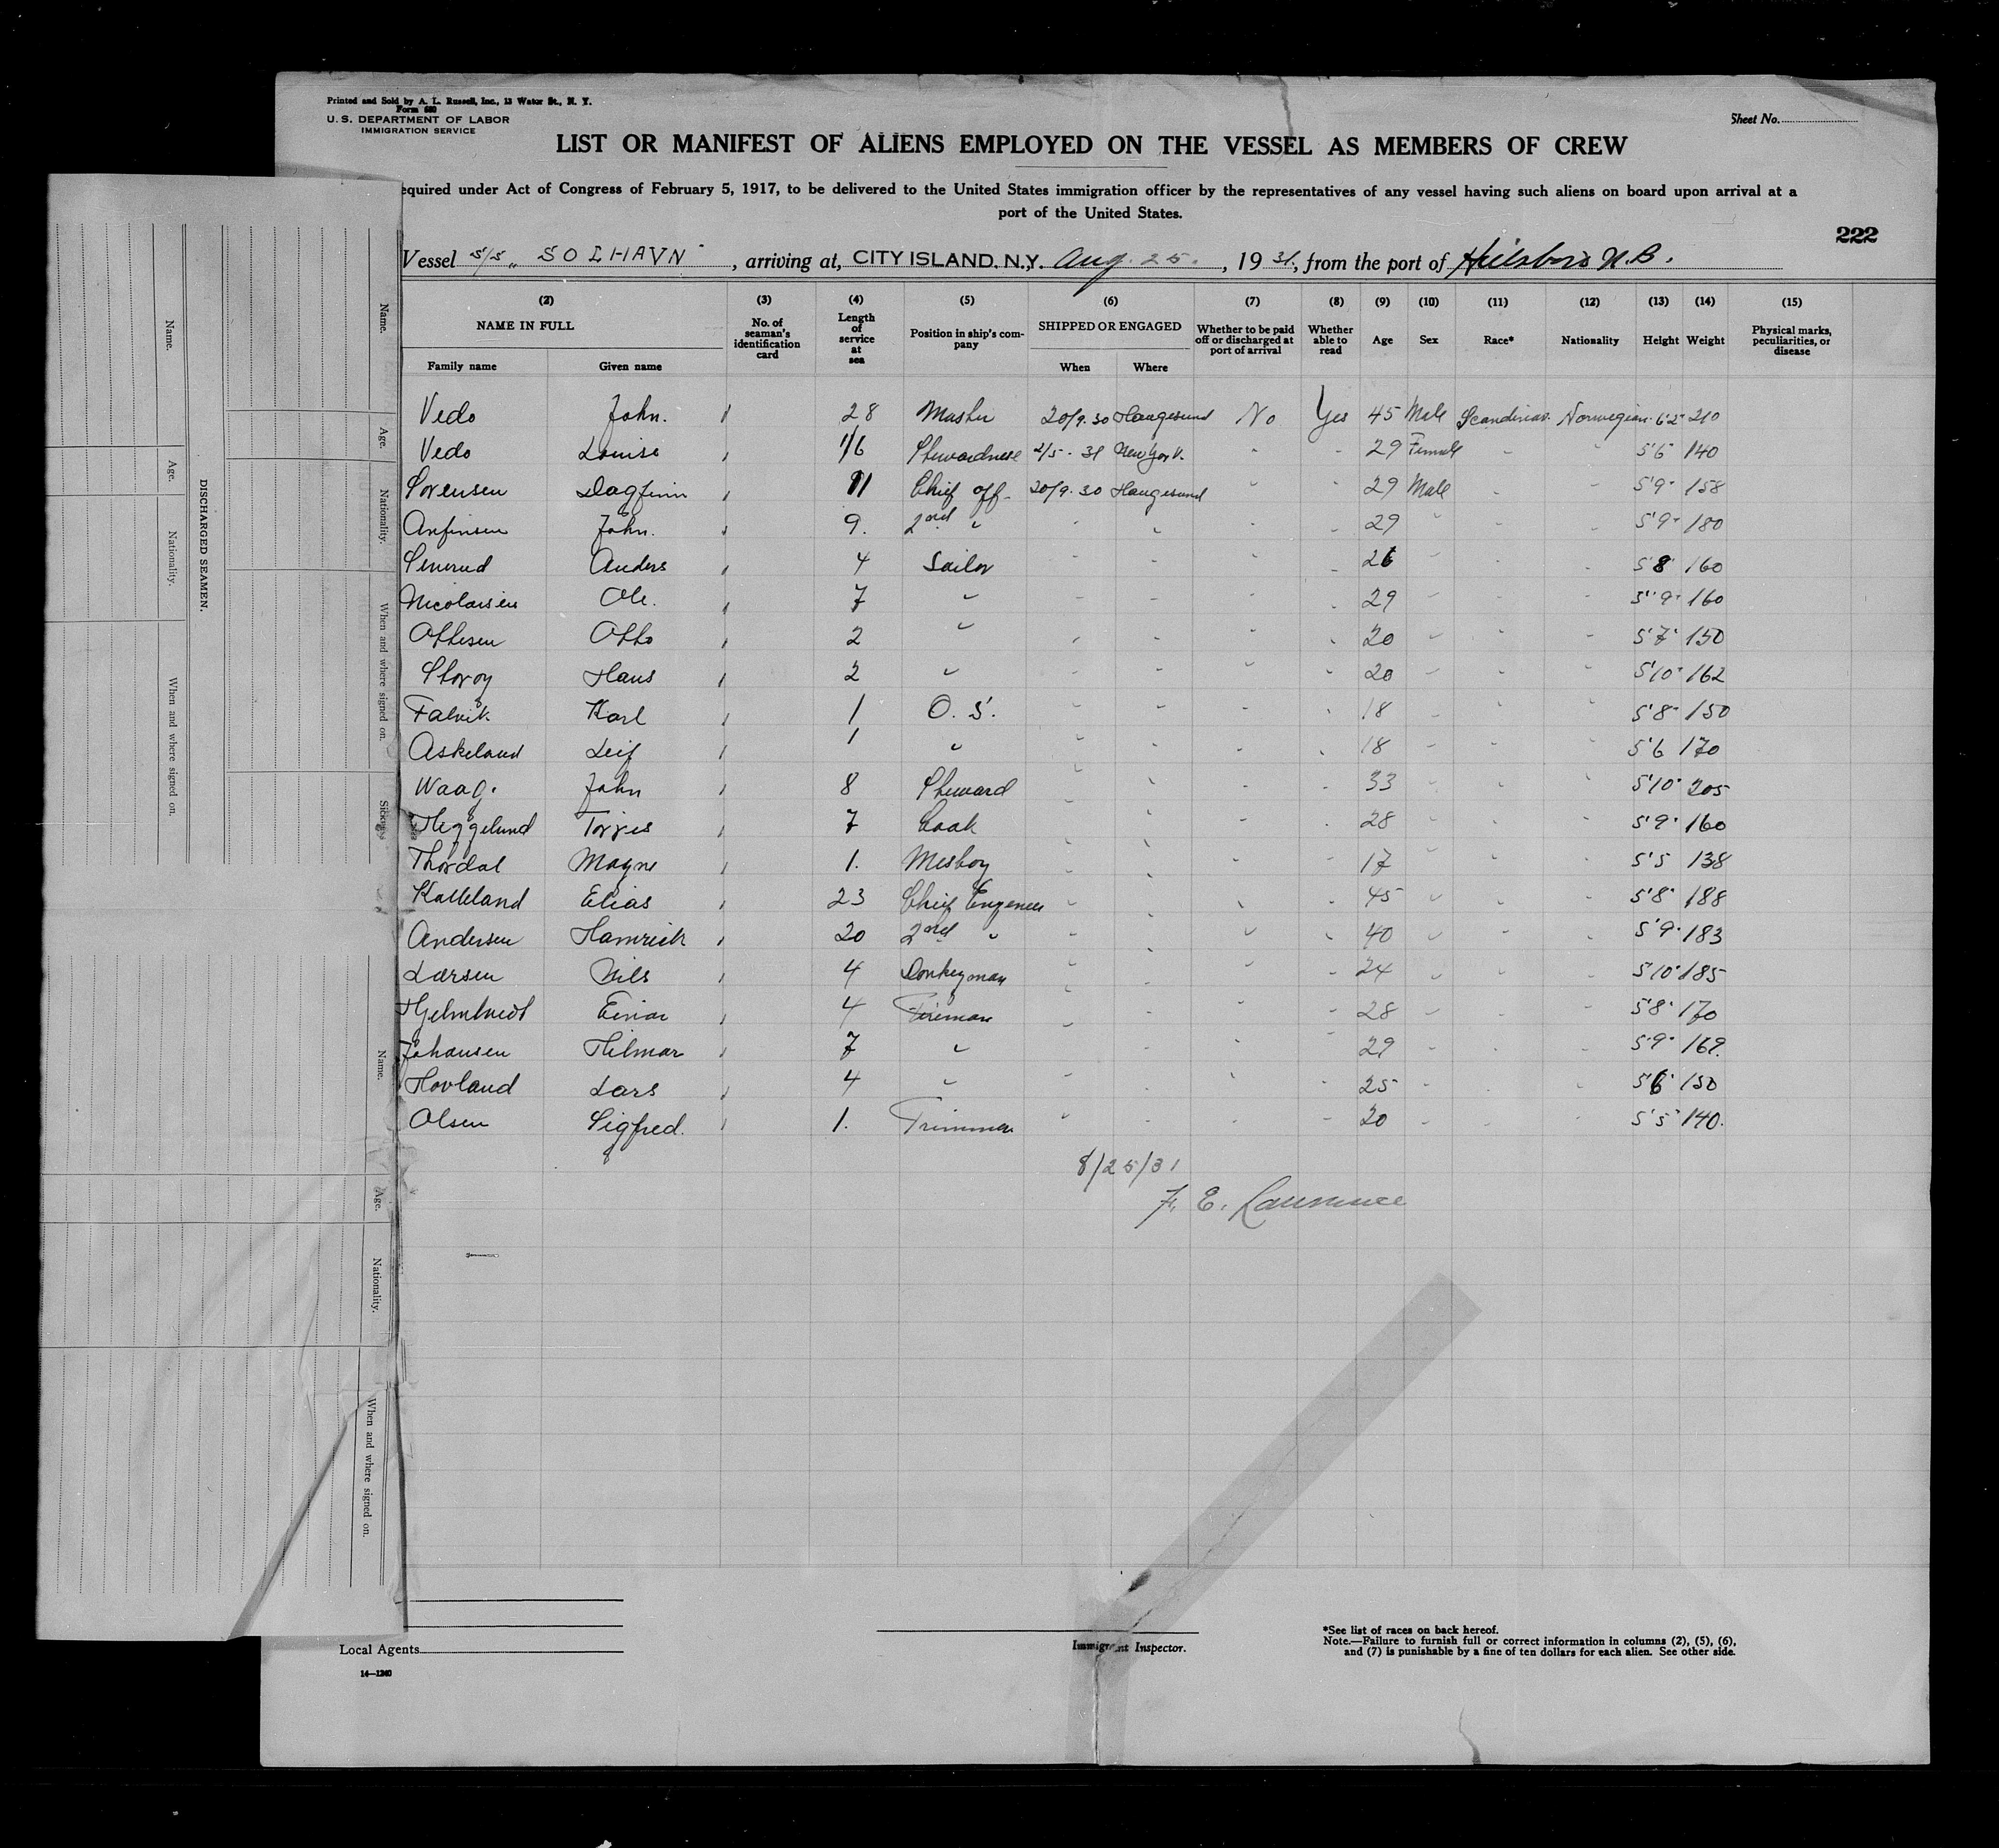 Printed and Sold by A. L. Russell, Inc., 13 Water St., N. Y.
Form 680
U. S. DEPARTMENT OF LABOR
IMMIGRATION SERVICE
Sheet No.
LIST OR MANIFEST OF ALIENS EMPLOYED ON THE VESSEL AS MEMBERS OF CREW
equired under Act of Congress of February 5, 1917, to be delivered to the United States immigration officer by the representatives of any vessel having such aliens on board upon arrival at a
port of the United States.
222
Vessel S/S „ SOLHAVN " , arriving at, CITY ISLAND, N.Y. Aug. 25. , 19 31, from the port of Hillsboro N.B.
(2) (3) (4) (5) (6) (7) (8) (9) (10) (11) (12) (13) (14) (15)
NAME IN FULL No. of seaman's identification card Length of service at sea Position in ship's com-pany SHIPPED OR ENGAGED Whether to be paid off or discharged at port of arrival Whether able to read Age Sex Race* Nationality Height Weight Physical marks, peculiarities, or disease
Family name Given name When Where
Vedo John. 28 Master 20/9.30 Haugesund No Yes 45 Male Scandinav. Norwegian. 6'2" 210
Vedo Louise 1/6 Stewardnese 2/5-31 New York. - - 29 Female - - 5'6 140
Sorensen Dagfinn 11 Chief off- 20/9.30 Haugesund - - 29 Male - - 5'9" 158
Anfinsen John. 9. 2nd " - - - - 29 - - - 5'9" 180
Anders 4 Sailor - - - - 26 - - - 5'8 160
Nicolaisen Ole. 7 " - - - - 29 - - - 5'9" 160
Ottesen Otto 2 " - - - - 20 - - - 5'7" 150
Storoy Hans 2 " - - - - 20 - - - 5'10" 162
Falvik Karl 1 O. S. - - - - 18 - - - 5'8" 150
Askeland Leif 1 " - - - - 18 - - - 5'6 170
Waag. John 8 Steward - - - - 33 - - - 5'10" 205
Heggelund Torjes 7 Cook - - - - 28 - - - 5'9" 160
Thordal Magne 1. Mesboy - - - - 17 - - - 5'5 138
Kalleland Elias 23 Chief Engeneer - - - - 45 - - - 5'8" 188
Andersen Hamrick 20 2nd " - - - - 40 - - - 5'9" 183
Larsen Nils 4 Donkeyman - - - - 24 - - - 5'10" 185
Hjelmtvedt Einar 4 Fireman - - - - 28 - - - 5'8" 170
Johansen Hilmar 7 " - - - - 29 - - - 5'9" 169.
Hovland Lars 4 " - - - - 25 - - - 5'6 150
Olsen Sigfred. 1. Trimmer - - - - 20 - - - 5'5" 140.
8/25/31
F. E. Lawrence
Local Agents
14—1240
Immigrant Inspector.
*See list of races on back hereof.
Note.—Failure to furnish full or correct information in columns (2), (5), (6),
and (7) is punishable by a fine of ten dollars for each alien. See other side.
DISCHARGED SEAMEN.
Name.
Age.
Nationality.
When and where signed on.
Name.
Age.
Nationality.
When and where signed on.
Sickness
Name.
Age.
Nationality.
When and where signed on.